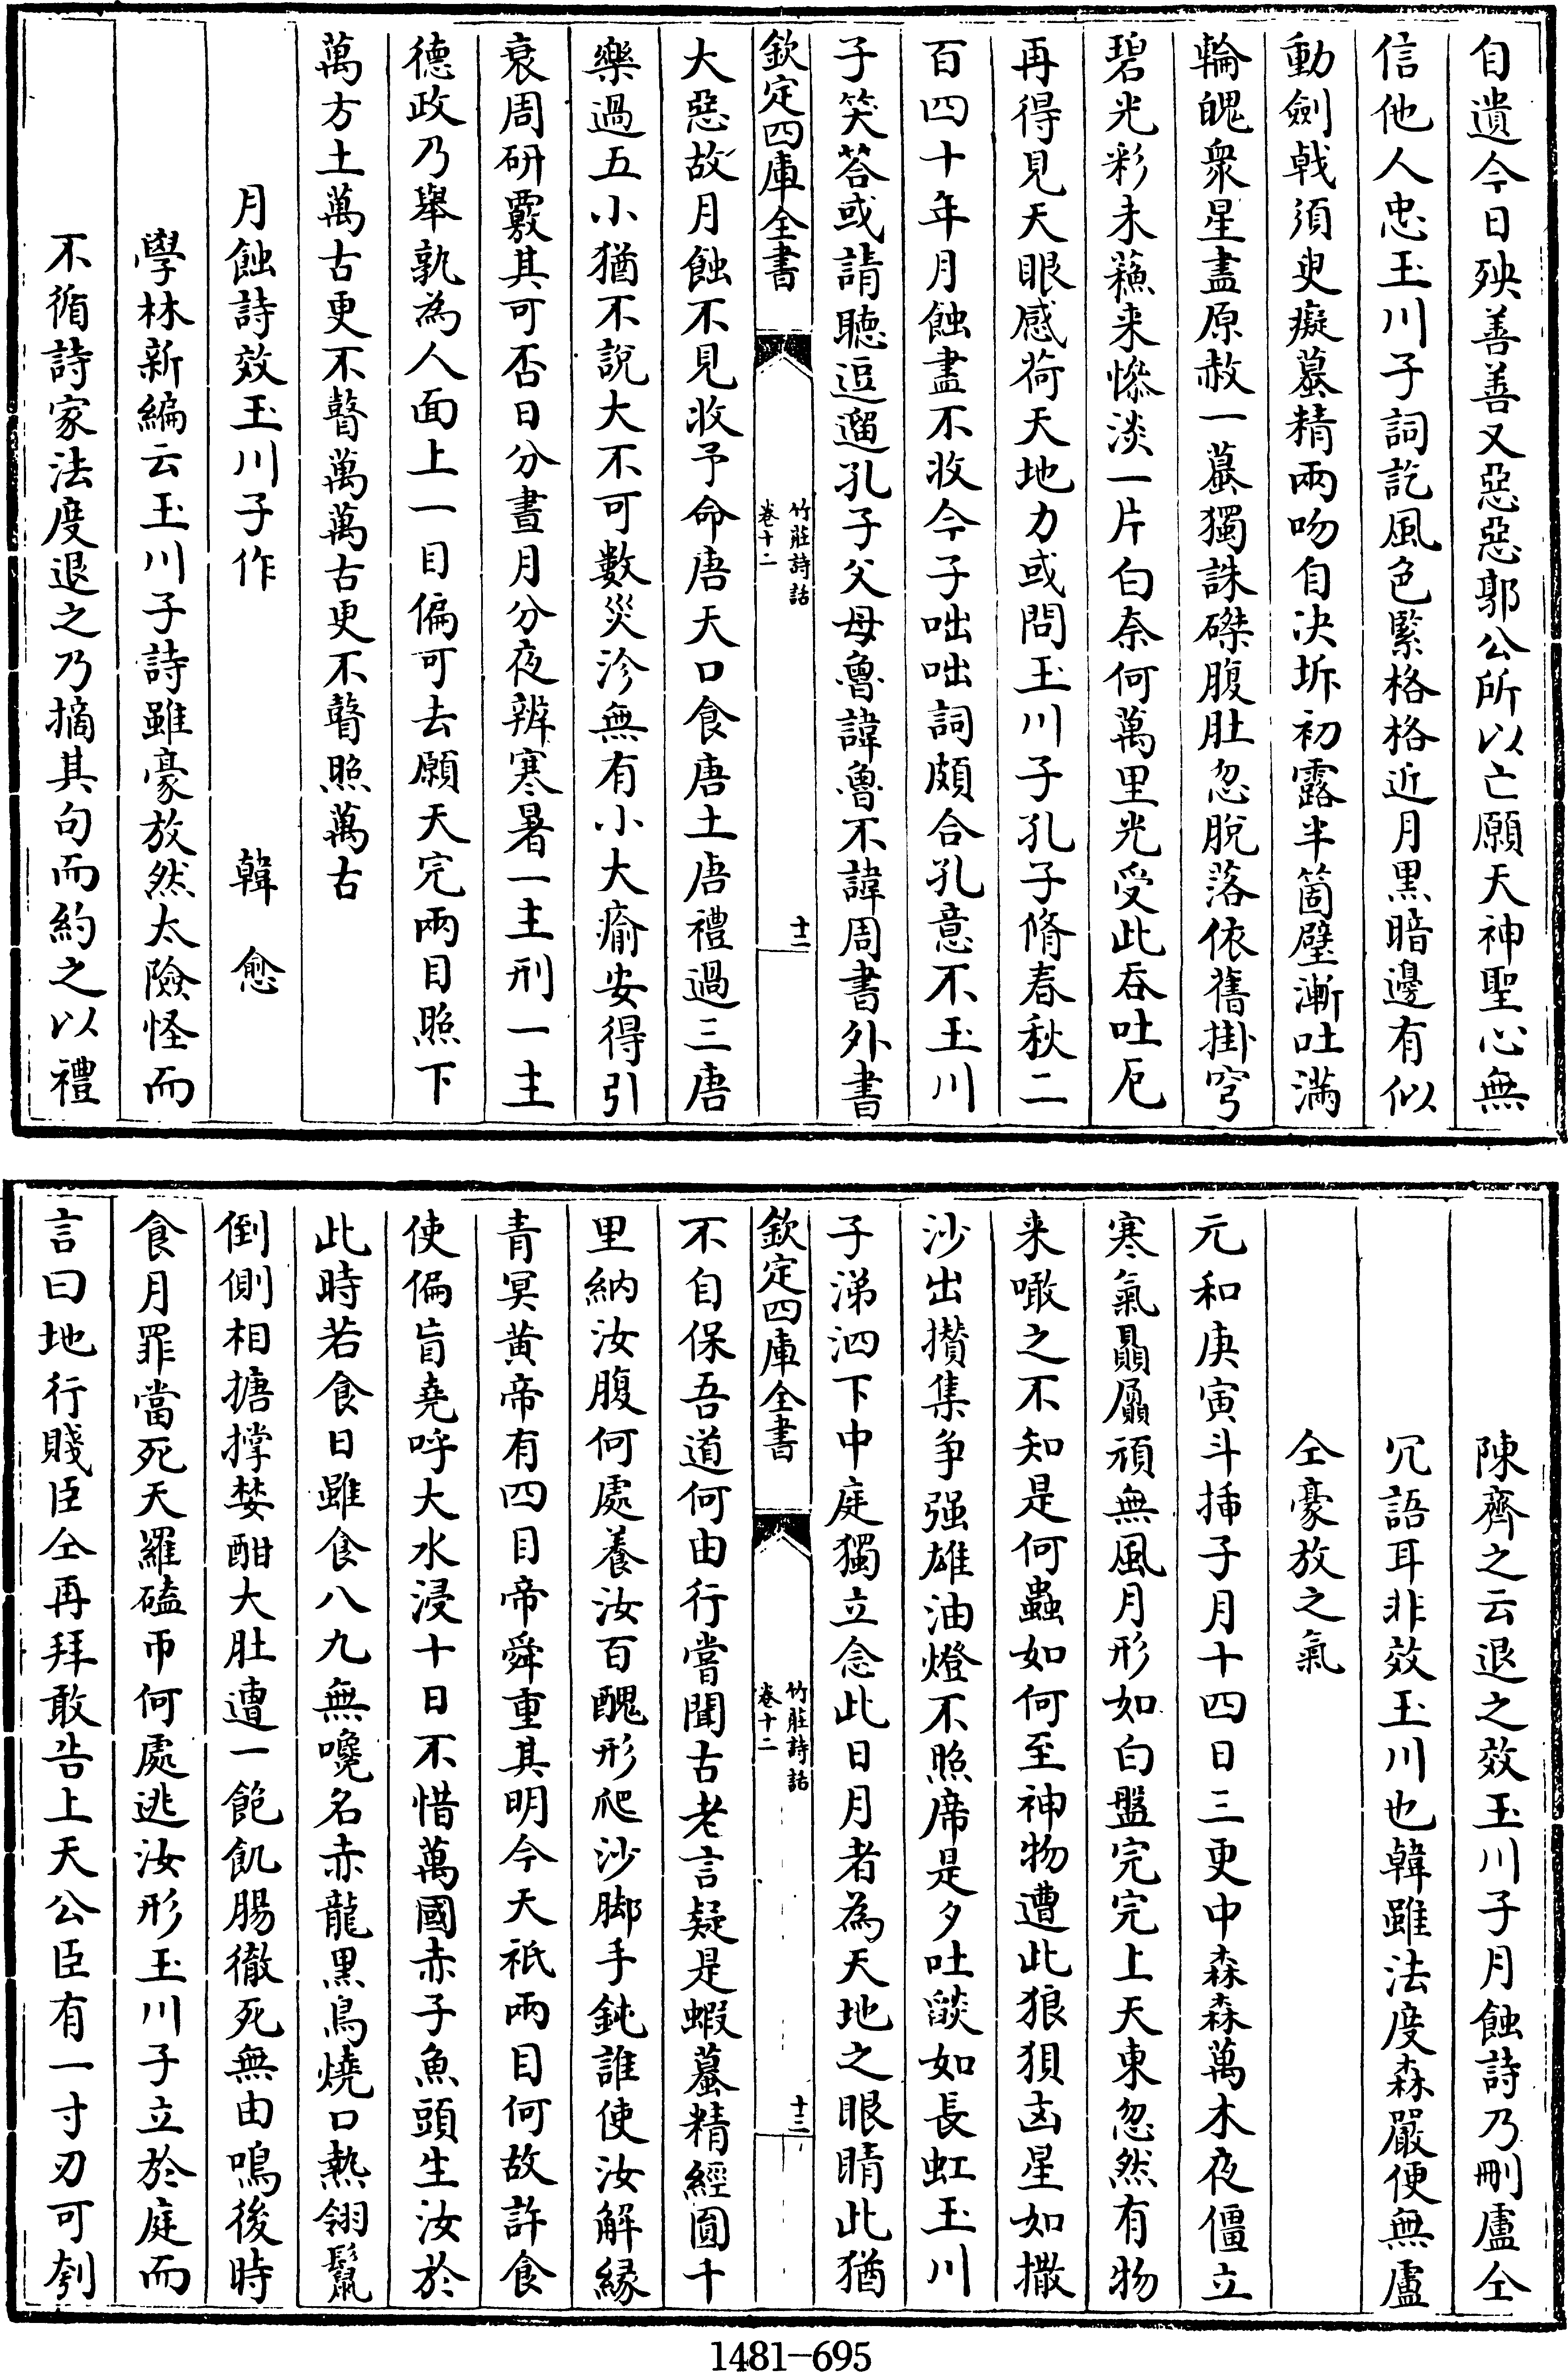 自遺今日殃善善又惡惡郭公所以亡願天神聖心無
信他人忠玉川子詞訖風色緊格格近月黑暗邊有似
動劍戟須臾癡蟇精兩吻自決坼初露半箇璧漸吐滿
輪魄衆星盡原赦一蟇獨誅磔腹肚忽脫落依舊掛穹
碧光彩未蘓来慘淡一片白奈何萬里光受此吞吐厄
再得見天眼感荷天地力或問玉川子孔子脩春秋二
百四十年月蝕盡不收今子咄咄詞頗合孔意不玉川
子笑荅或請聽逗遛孔子父母魯諱魯不諱周書外書
欽定四庫全書
竹莊詩話
卷十二
十二
大惡故月蝕不見收予命唐天口食唐土唐禮過三唐
樂過五小猶不說大不可數災沴無有小大瘉安得引
衰周研覈其可否日分晝月分夜辨寒暑一主刑一主
德政乃舉孰為人面上一目偏可去願天完兩目照下
萬方土萬古更不瞽萬萬古更不瞽照萬古
月蝕詩效玉川子作 韓愈
學林新編云玉川子詩雖豪放然太險怪而
不循詩家法度退之乃摘其句而約之以禮
陳齊之云退之效玉川子月蝕詩乃刪盧仝
冗語耳非效玉川也韓雖法度森嚴便無盧
仝豪放之氣
元和庚寅斗揷子月十四日三更中森森萬木夜僵立
寒氣贔屭頑無風月形如白盤完完上天東忽然有物
来噉之不知是何蟲如何至神物遭此狼狽凶星如撒
沙出攢集争强雄油燈不照席是夕吐燄如長虹玉川
子涕泗下中庭獨立念此日月者為天地之眼睛此猶
欽定四庫全書
竹莊詩話
卷十二
十三
不自保吾道何由行嘗聞古老言疑是蝦蟇精經圓千
里納汝腹何處養汝百醜形爬沙脚手鈍誰使汝解縁
青冥黄帝有四目帝舜重其明今天祇兩目何故許食
使偏盲堯呼大水浸十日不惜萬國赤子魚頭生汝於
此時若食日雖食八九無嚵名赤龍黒鳥燒口熱翎鬣
倒側相搪撑婪酣大肚遭一飽飢腸徹死無由鳴後時
食月罪當死天羅磕帀何處逃汝形玉川子立於庭而
言曰地行賤臣仝再拜敢告上天公臣有一寸刃可刳
1481-695